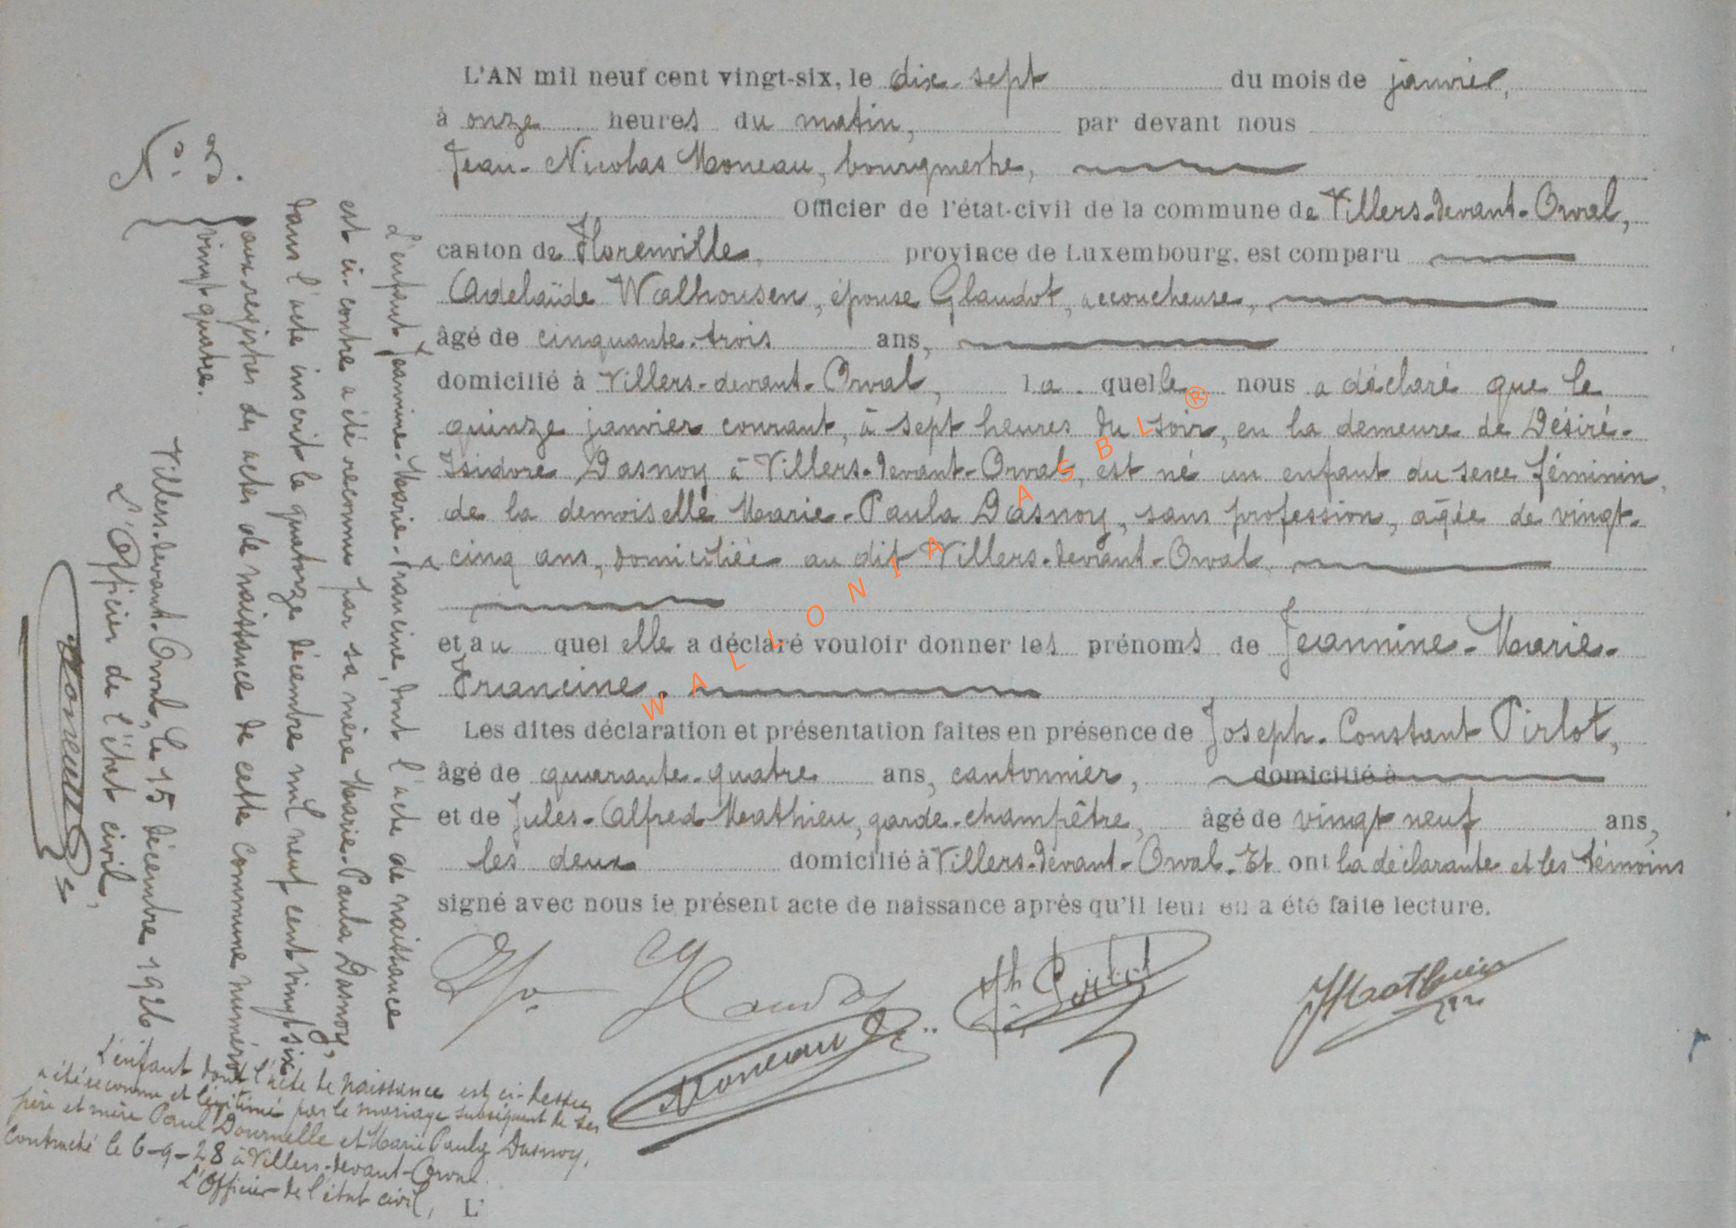 L'AN mil neuf cent vingt-six, le dix-sept du mois de janvier,
à onze heures du matin, par devant nous
Jean-Nicolas Moneau, bourgmestre,
Officier de l'état-civil de la commune de Villers-devant-Orval,
canton de Florenville, province de Luxembourg, est comparu
Adelaïde Walhousen, épouse Glaudot, accoucheuse,
âgé de cinquante-trois ans,
domicilié à Villers-devant-Orval, la quelle nous a déclaré que le
quinze janvier courant, à sept heures du soir, en la demeure de Désiré-
Isidore Dasnoy à Villers-devant-Orval, est né un enfant du sexe féminin,
de la demoiselle Marie-Paula Dasnoy, sans profession, âgée de vingt-
cinq ans, domiciliée au dit Villers-devant-Orval.
et au quel elle a déclaré vouloir donner les prénoms de Jeannine-Marie-
Francine.
Les dites déclaration et présentation faites en présence de Joseph-Constant Pirlot,
âgé de quarante-quatre ans, cantonnier, domicilié à
et de Jules-Alfred Mathieu, garde-champêtre, âgé de vingt neuf ans,
les deux domicilié à Villers-devant-Orval. Et ont la déclarante et les témoins
signé avec nous le présent acte de naissance après qu'il leur en a été faite lecture.
Moneau
Jh Pirlot
JMathieu
WALLONIA ASBL ®
N° 3.
L'enfant Jeannine-Marie-Francine, dont l'acte de naissance
est ci-contre a été reconnu par sa mère Marie-Paula Dasnoy,
dans l'acte inscrit le quatorze décembre mil neuf cent vingt six
aux registres des actes de naissance de cette commune numéro
vingt quatre.
Villers-devant-Orval, le 15 décembre 1926
L'Officier de l'état civil,
Moneau
L'enfant dont l'acte de naissance est ci-dessus
a été reconnu et légitimé par le mariage subséquent de ses
père et mère Paul Dournelle et Marie Paula Dasnoy,
contracté le 6-9-28 à Villers-devant-Orval.
L'Officier de l'état civil,
L'